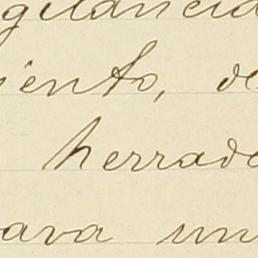 gilancia
iento, de
herrado
ava un